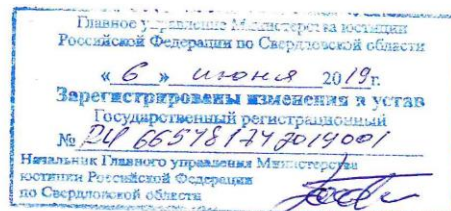 Главное управление Министерства юстиции
Российской Федерации по Свердловской области
« 6 » июня 2019г.
Зарегистрированы изменения в устав
Государственный регистрационный
№ RU 665781742019001
Начальник Главного управления Министерства
юстиции Российской Федерации
по Свердловской области